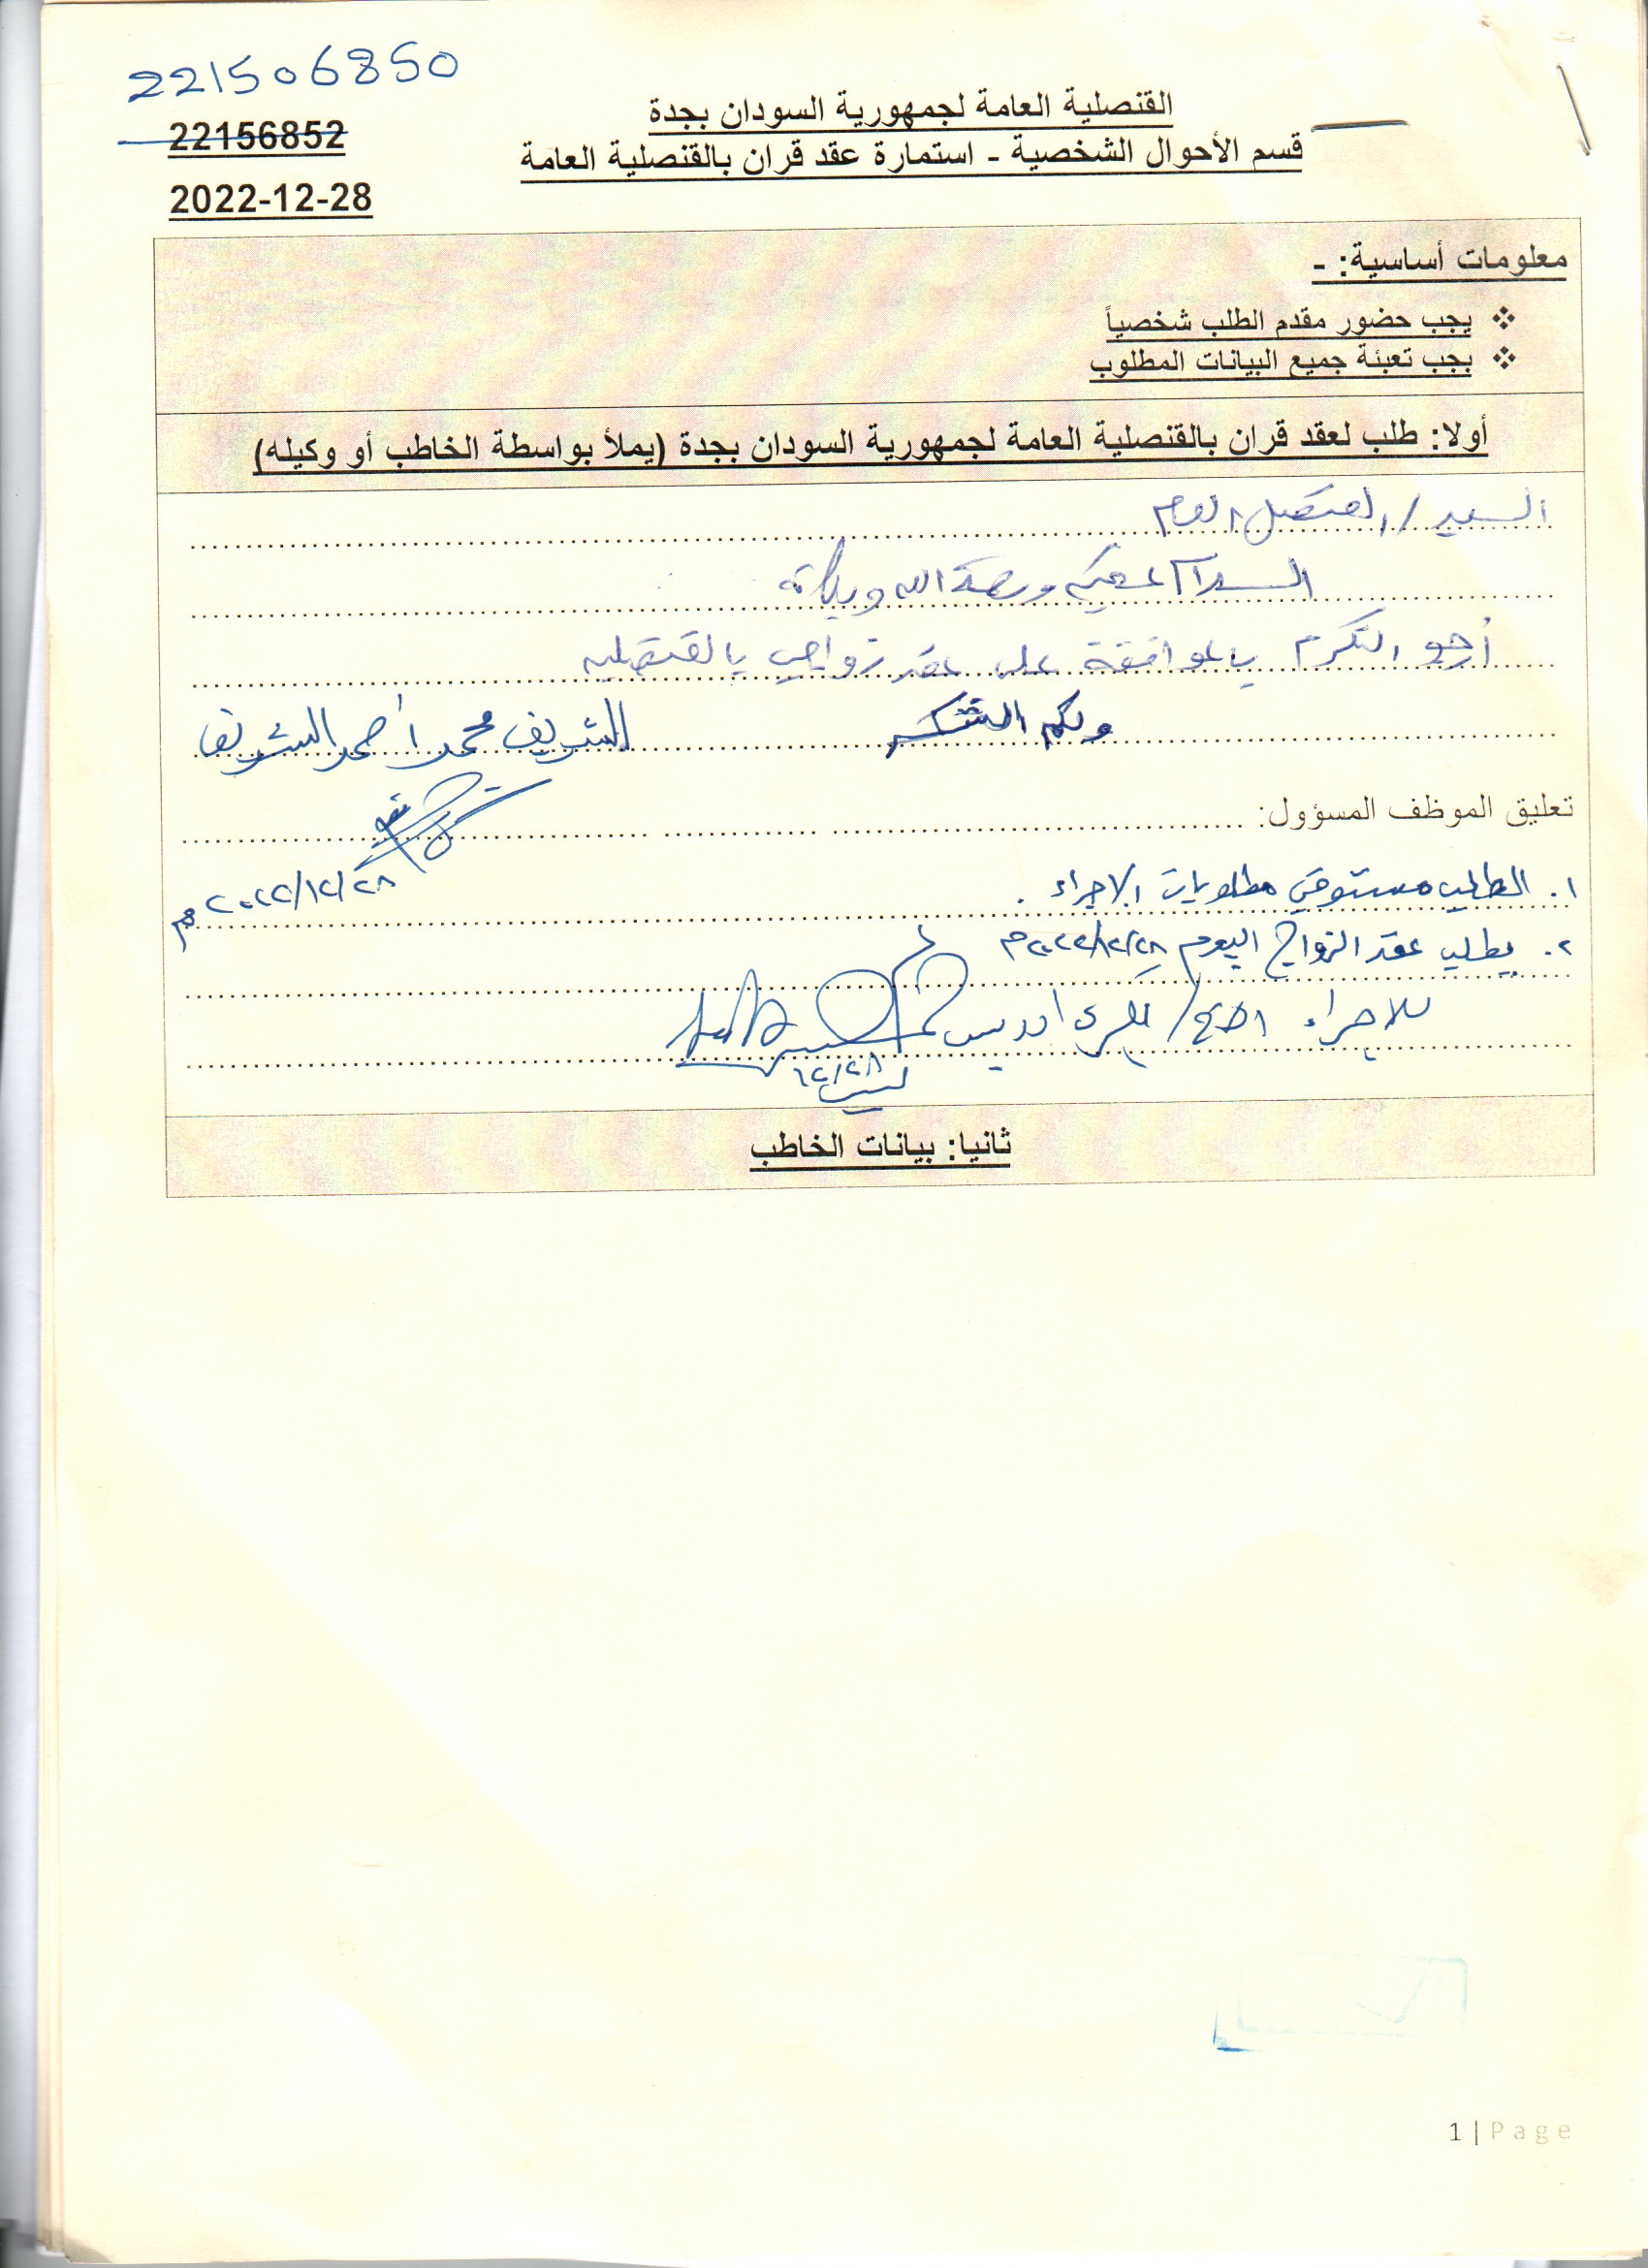 221506850
22156852
2022-12-28
القنصلية العامة لجمهورية السودان بجدة
قسم الأحوال الشخصية - استمارة عقد قران بالقنصلية العامة
معلومات أساسية: -
❖ يجب حضور مقدم الطلب شخصياً
❖ يجب تعبئة جميع البيانات المطلوب
أولا: طلب لعقد قران بالقنصلية العامة لجمهورية السودان بجدة (يملأ بواسطة الخاطب أو وكيله)
السيد / القنصل العام
السلام عليكم ورحمة الله وبركاته
أرجو التكرم بالموافقة على عقد زواجي بالقنصليه
ولكم الشكر
الشريف محمد أحمد الشريف
تعليق الموظف المسؤول:
٢٠٢٢/١٢/٢٨م
١. الطلب مستوفي مطلوبات الإجراء.
٢. يطلب عقد الزواج اليوم ٢٠٢٢/١٢/٢٨م
للاجراء
١٢/٢٨
ثانيا: بيانات الخاطب
1 | Page